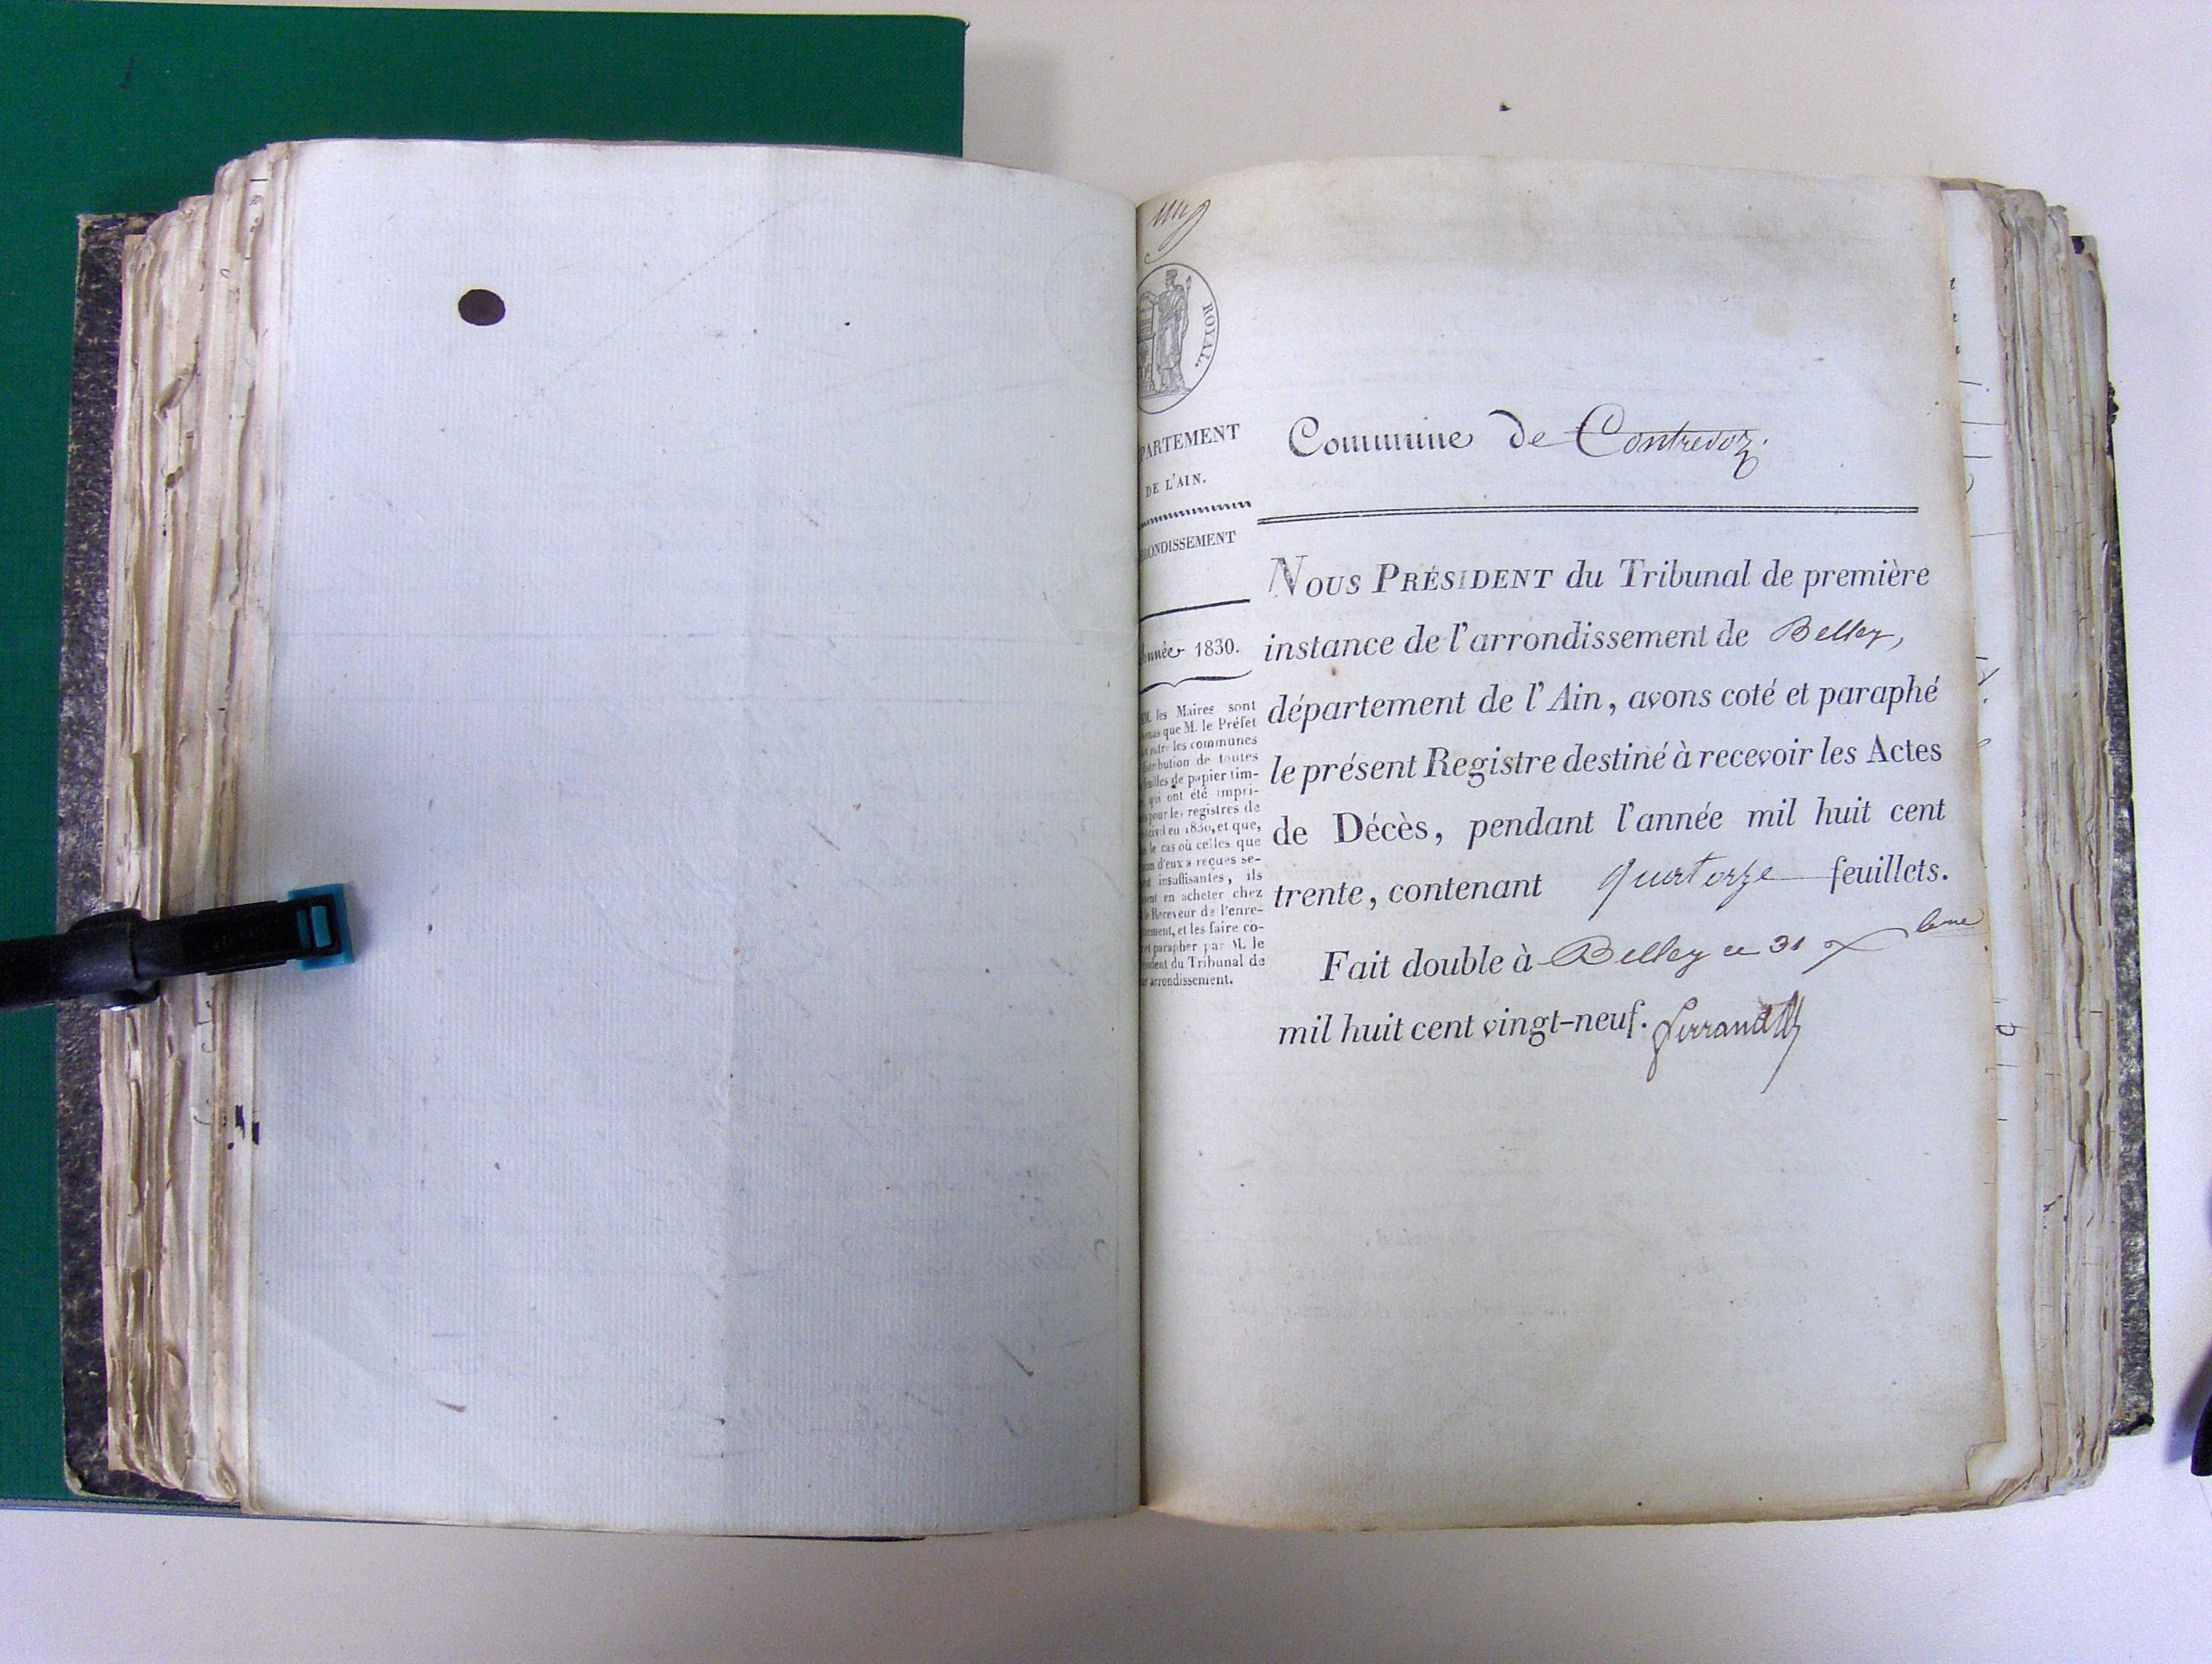 ROYAL.
PARTEMENT
DE L'AIN.
ONDISSEMENT
1830.
les Maires sont
que M. le Préfet
les communes
de toutes
de papier tim-
qui ont été impri-
pour les registres de
civil en 1830, et que,
le cas où celles que
d'eux a reçues se-
insuffisantes, ils
en acheter chez
Receveur de l'enre-
et les faire co-
et parapher par M. le
du Tribunal de
arrondissement.
Commune de Contrevoz.
NOUS PRÉSIDENT du Tribunal de première
instance de l'arrondissement de Belley,
département de l'Ain, avons coté et paraphé
le présent Registre destiné à recevoir les Actes
de Décès, pendant l'année mil huit cent
trente, contenant quatorze feuillets.
Fait double à Belley ce 31 Xbre
mil huit cent vingt-neuf. Ferrand